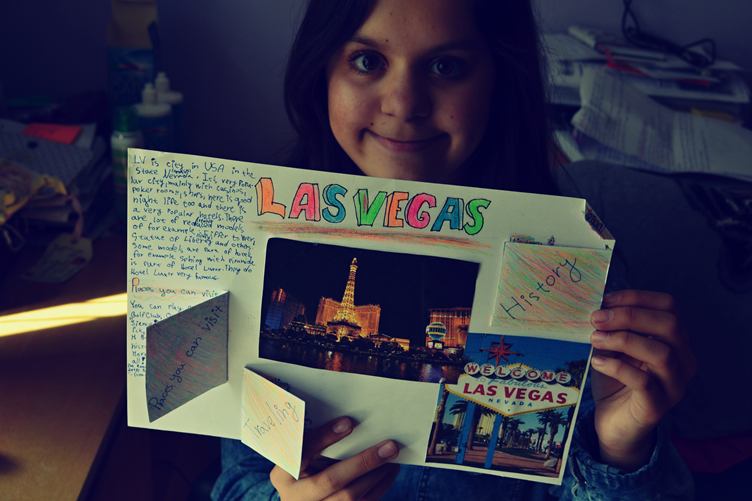 LV is city in USA in the
state Nevada. It's very popu-
lar city, mainly with casinos,
poker rooms, shops, here is good
night life too and there is
a very popular hotels. There
are lot of models
of for example
Statue of Liberty and others.
Some models are part of hotels
for example sphinx with
is part of hotel Luxor. They do
Hotel Luxor very famous.
Places you can visit
You can play
Golf Club,
LAS VEGAS
History
Places you can visit
Traveling
WELCOME
to Fabulous
LAS VEGAS
NEVADA